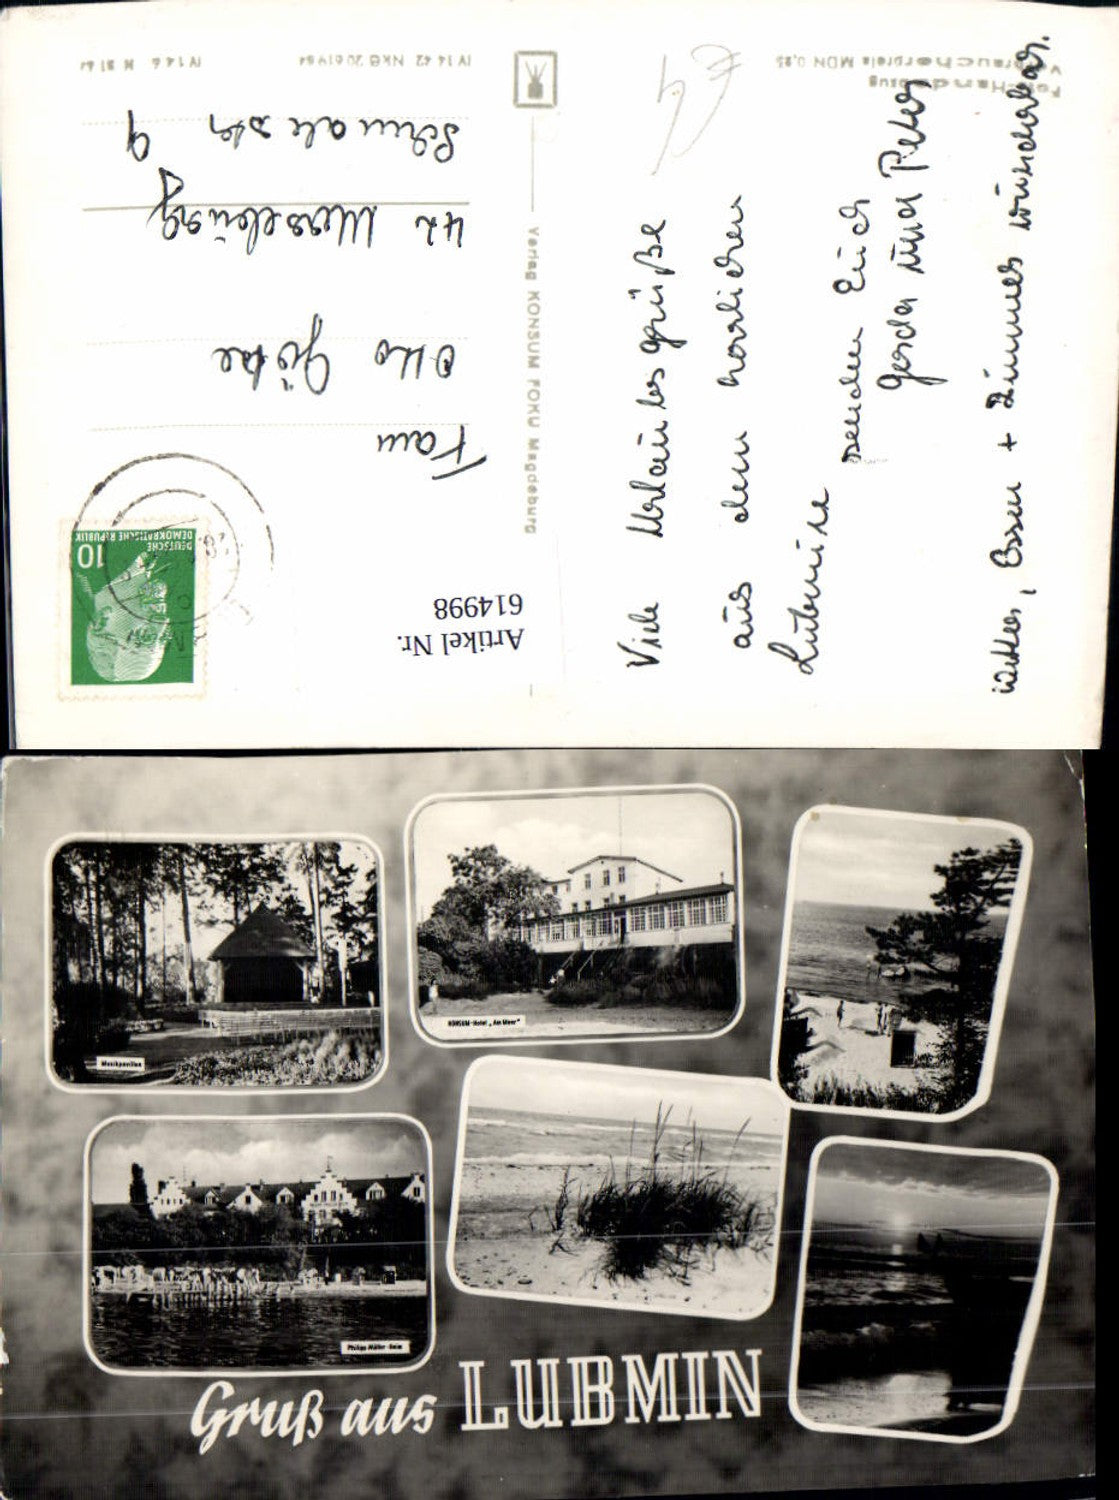 Foto-Handabzug
Verbraucherpreis MDN 0,25
IV 14 42 NKG 206 1964
IV 14 6
Verlag KONSUM FOKU Magdeburg
DEUTSCHE
DEMOKRATISCHE REPUBLIK
10
Artikel Nr.
614998
Otto Götze
42 Merseburg
9
Viele Urlaubsgrüße
aus dem herrlichen
Lubmin
senden Euch
Gerda und Peter
Wetter, Essen + Zimmer wunderbar.
Musikpavillon
KONSUM-Hotel „Am Meer"
Philipp-Müller-Heim
Gruß aus LUBMIN